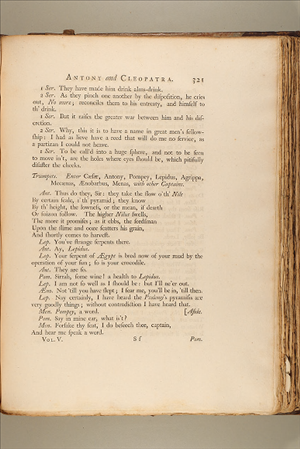 ANTONY and CLEOPATRA. 321
1 Ser. They have made him drink alms-drink.
2 Ser. As they pinch one another by the disposition, he cries
out, No more; reconciles them to his entreaty, and himself to
th' drink.
1 Ser. But it raises the greater war between him and his dis-
cretion.
2 Ser. Why, this it is to have a name in great men's fellow-
ship: I had as lieve have a reed that will do me no service, as
a partizan I could not heave.
1 Ser. To be call'd into a huge sphere, and not to be seen
to move in't, are the holes where eyes should be, which pitifully
disaster the cheeks.
Trumpets. Enter Cæsar, Antony, Pompey, Lepidus, Agrippa,
Mecænas, Ænobarbus, Menas, with other Captains.
Ant. Thus do they, Sir: they take the flow o'th' Nile
By certain scale, i'th' pyramid; they know
By th' height, the lowness, or the mean, if dearth
Or foizon follow. The higher Nilus swells,
The more it promises; as it ebbs, the seedsman
Upon the slime and ooze scatters his grain,
And shortly comes to harvest.
Lep. You've strange serpents there.
Ant. Ay, Lepidus.
Lep. Your serpent of Ægypt is bred now of your mud by the
operation of your sun; so is your crocodile.
Ant. They are so.
Pom. Sit, and some wine: a health to Lepidus.
Lep. I am not so well as I should be: but I'll ne'er out.
Æno. Not 'till you have slept; I fear me, you'll be in, 'till then.
Lep. Nay certainly, I have heard the Ptolomy's pyramisis are
very goodly things; without contradiction I have heard that.
Men. Pompey, a word. [Aside.
Pom. Say in mine ear, what is't?
Men. Forsake thy seat, I do beseech thee, captain,
And hear me speak a word.
VOL. V. S f Pom.